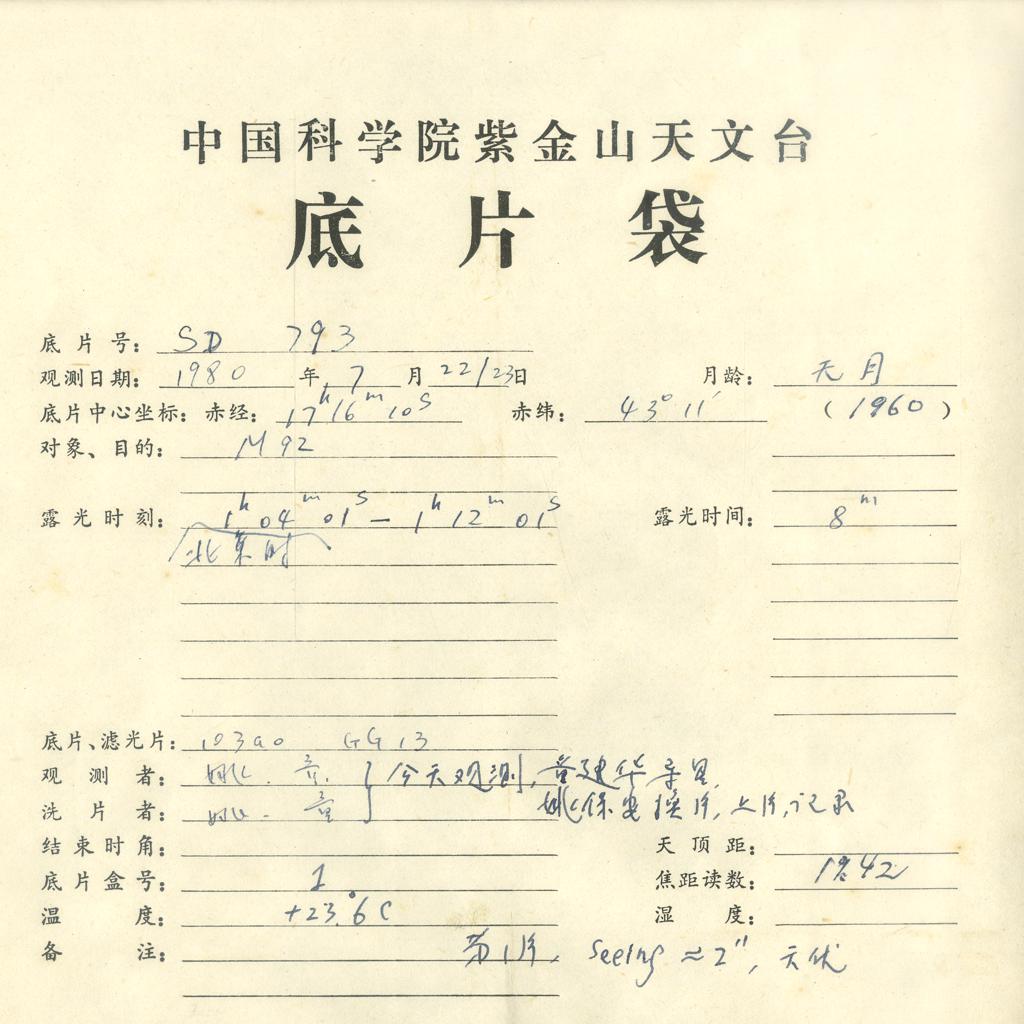 中国科学院紫金山天文台
底片袋
底片号: SD 793
观测日期: 1980年 7月 22/23日 月龄: 无月
底片中心坐标: 赤经: 17ʰ16ᵐ10ˢ 赤纬: 43°11′ (1960)
对象、目的: M92
露光时刻: 1ʰ04ᵐ01ˢ — 1ʰ12ᵐ01ˢ 露光时间: 8ᵐ
北京时
底片、滤光片: 103aO GG13
观测者: 姚. 童. } 今天观测, 童建华寻星,
洗片者: 姚. 童 姚保安换片, 上片, 记录
结束时角: 天顶距:
底片盒号: 1 焦距读数: 18.42
温度: +23.°6C 湿度:
备注: 第1片, Seeing ≈ 2″,